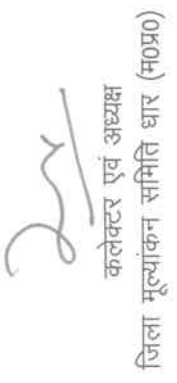 कलेक्टर एवं अध्यक्ष
जिला मूल्यांकन समिति धार (म0प्र0)